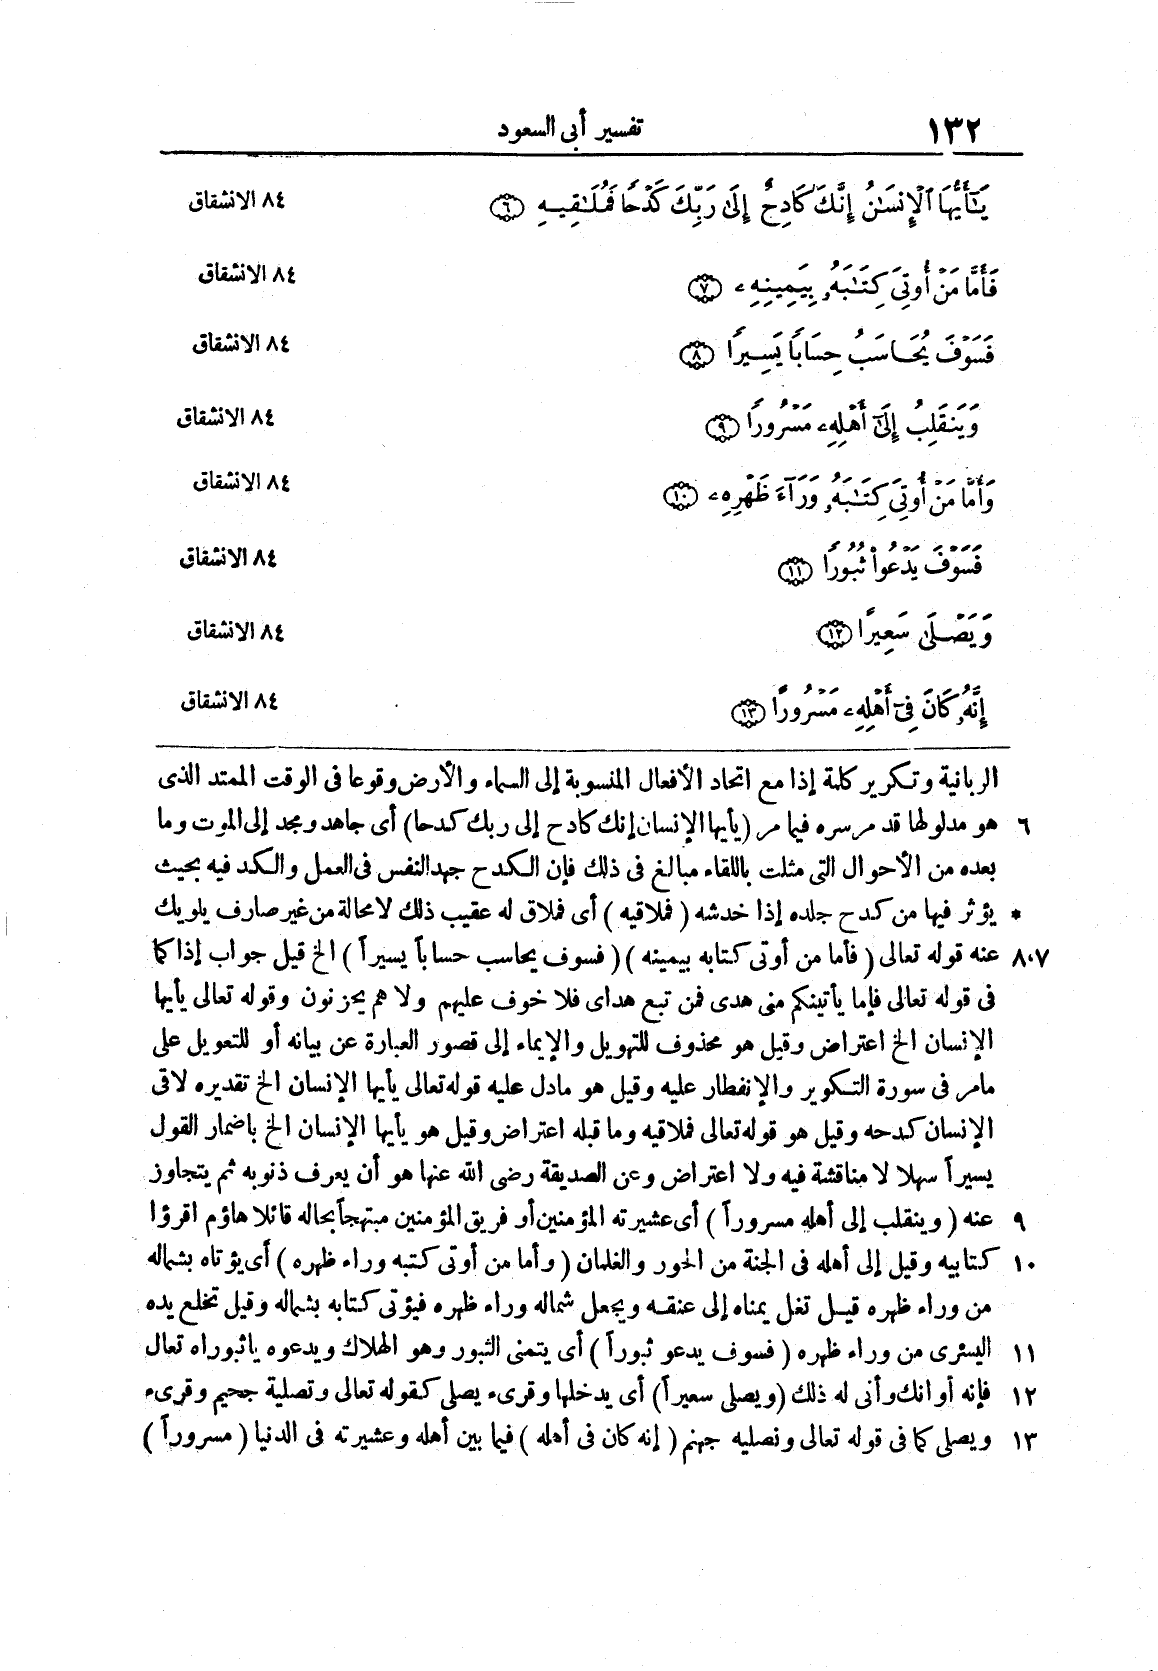 ١٣٢ تفسير أبى السعود
يَٰٓأَيُّهَا ٱلْإِنسَٰنُ إِنَّكَ كَادِحٌ إِلَىٰ رَبِّكَ كَدْحًا فَمُلَٰقِيهِ ٦ ٨٤ الانشقاق
فَأَمَّا مَنْ أُوتِىَ كِتَٰبَهُۥ بِيَمِينِهِۦ ٧ ٨٤ الانشقاق
فَسَوْفَ يُحَاسَبُ حِسَابًا يَسِيرًا ٨ ٨٤ الانشقاق
وَيَنقَلِبُ إِلَىٰٓ أَهْلِهِۦ مَسْرُورًا ٩ ٨٤ الانشقاق
وَأَمَّا مَنْ أُوتِىَ كِتَٰبَهُۥ وَرَآءَ ظَهْرِهِۦ ١٠ ٨٤ الانشقاق
فَسَوْفَ يَدْعُوا۟ ثُبُورًا ١١ ٨٤ الانشقاق
وَيَصْلَىٰ سَعِيرًا ١٢ ٨٤ الانشقاق
إِنَّهُۥ كَانَ فِىٓ أَهْلِهِۦ مَسْرُورًا ١٣ ٨٤ الانشقاق
الربانية وتكرير كلمة إذا مع اتحاد الأفعال المنسوبة إلى السماء والأرض وقوعا فى الوقت الممتد الذى
٦ هو مدلولها قد مر سره فيما مر (يأيها الإنسان إنك كادح إلى ربك كدحا) أى جاهد ومجد إلى الموت وما
بعده من الأحوال التى مثلت باللقاء مبالغ فى ذلك فإن الكدح جهد النفس فى العمل والكد فيه بحيث
* يؤثر فيها من كدح جلده إذا خدشه ( فملاقيه ) أى فملاق له عقيب ذلك لامحالة من غير صارف يلويك
٨،٧ عنه قوله تعالى ( فأما من أوتى كتابه بيمينه ) ( فسوف يحاسب حساباً يسيراً ) الخ قيل جواب إذا كما
فى قوله تعالى فإما يأتينكم منى هدى فمن تبع هداى فلا خوف عليهم ولا هم يحزنون وقوله تعالى يأيها
الإنسان الخ اعتراض وقيل هو محذوف للتهويل والإيماء إلى قصور العبارة عن بيانه أو للتعويل على
مامر فى سورة التكوير والإنفطار عليه وقيل هو مادل عليه قوله تعالى يأيها الإنسان الخ تقديره لاقى
الإنسان كدحه وقيل هو قوله تعالى فملاقيه وما قبله اعتراض وقيل هو يأيها الإنسان الخ باضمار القول
يسيراً سهلا لا مناقشة فيه ولا اعتراض وعن الصديقة رضى الله عنها هو أن يعرف ذنوبه ثم يتجاوز
٩ عنه ( وينقلب إلى أهله مسروراً ) أى عشيرته المؤمنين أو فريق المؤمنين مبتهجاً بحاله قائلا هاؤم اقرؤا
١٠ كتابيه وقيل إلى أهله فى الجنة من الحور والغلمان ( وأما من أوتى كتبه وراء ظهره ) أى يؤتاه بشماله
من وراء ظهره قيل تغل يمناه إلى عنقه ويجعل شماله وراء ظهره فيؤتى كتابه بشماله وقيل تخلع يده
١١ اليسرى من وراء ظهره ( فسوف يدعو ثبوراً ) أى يتمنى الثبور وهو الهلاك ويدعوه ياثبوراه تعال
١٢ فإنه أوانك وأنى له ذلك (ويصلى سعيراً) أى يدخلها وقرىء يصلى كقوله تعالى وتصلية جحيم وقرىء
١٣ ويصلى كما فى قوله تعالى ونصليه جهنم ( إنه كان فى أهله ) فيما بين أهله وعشيرته فى الدنيا ( مسروراً )